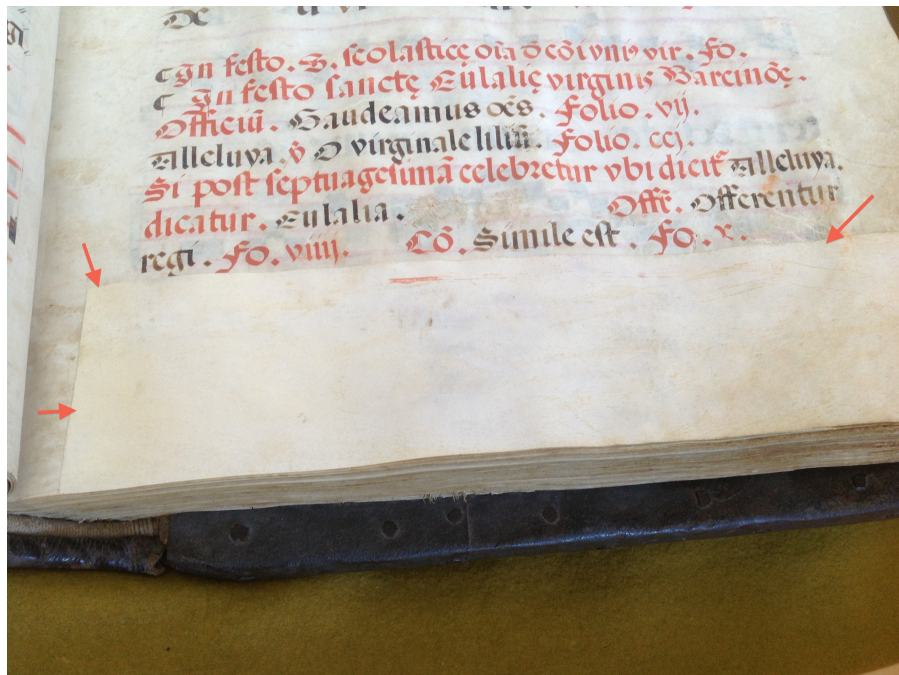 In festo. S. scolasticę oīa ō cōī vniꝰ vir. Fo.
In festo sanctę Eulalię virginis Barcinōę.
Officiū. Gaudeamus oēs. Folio. vij.
Alleluya. v̄ O virginale liliū. Folio. ccj.
Si post septuagesimā celebretur vbi dicit Alleluya.
dicatur. Eulalia. Offr̄. Offerentur
regi. Fo. viiij. Cō. Simile est. Fo. x.